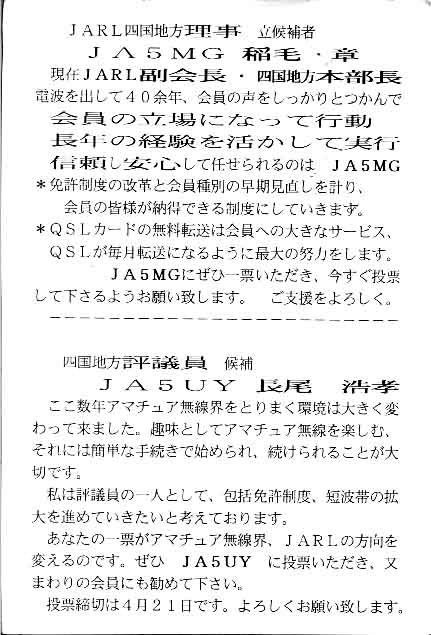 JARL四国地方理事 立候補者
JA5MG 稲毛・章
現在JARL副会長・四国地方本部長
電波を出して40余年、会員の声をしっかりとつかんで
会員の立場になって行動
長年の経験を活かして実行
信頼し安心して任せられるのは JA5MG
*免許制度の改革と会員種別の早期見直しを計り、
会員の皆様が納得できる制度にしていきます。
*QSLカードの無料転送は会員への大きなサービス、
QSLが毎月転送になるように最大の努力をします。
JA5MGにぜひ一票いただき、今すぐ投票
して下さるようお願い致します。 ご支援をよろしく。
四国地方評議員 候補
JA5UY 長尾 浩孝
ここ数年アマチュア無線界をとりまく環境は大きく変
わって来ました。趣味としてアマチュア無線を楽しむ、
それには簡単な手続きで始められ、続けられることが大
切です。
私は評議員の一人として、包括免許制度、短波帯の拡
大を進めていきたいと考えております。
あなたの一票がアマチュア無線界、JARLの方向を
変えるのです。ぜひ JA5UY に投票いただき、又
まわりの会員にも勧めて下さい。
投票締切は4月21日です。よろしくお願い致します。